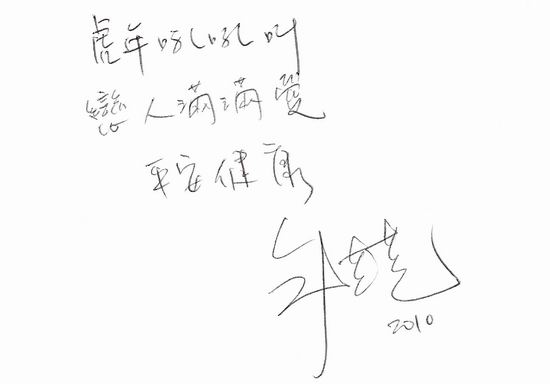 虎年吼吼叫
戀人滿滿愛
平安健康
2010